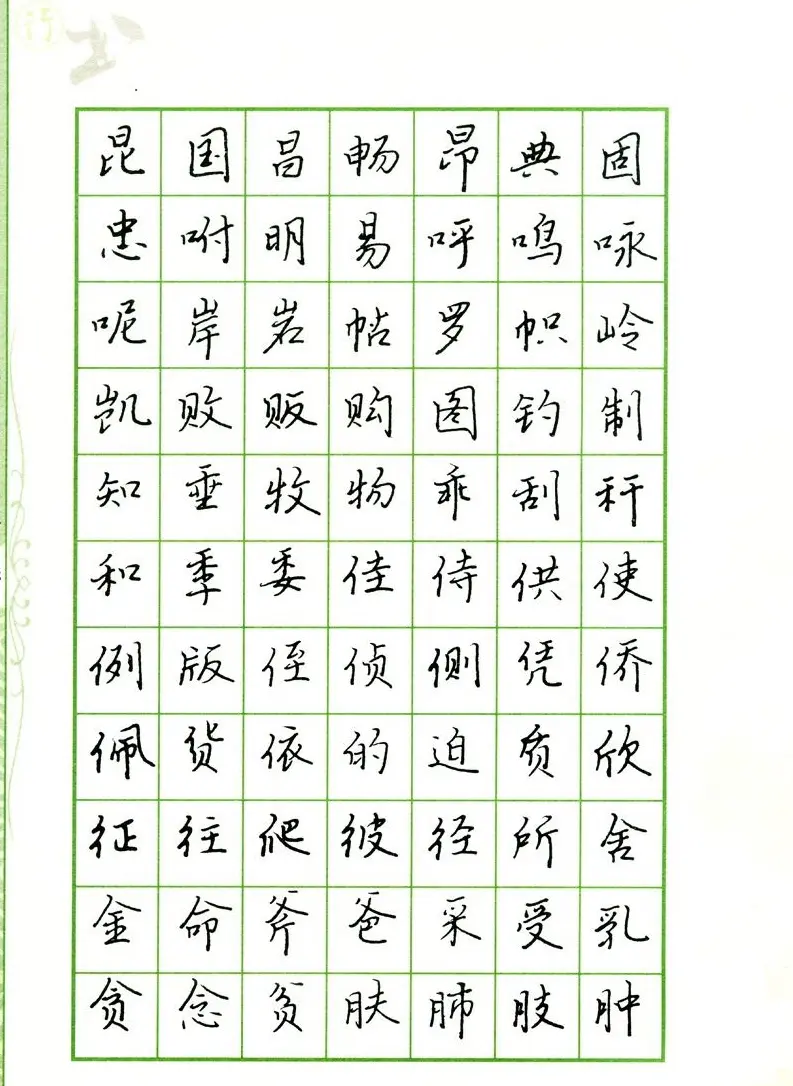 行书
昆国昌畅昂典固
忠咐明易呼鸣咏
呢岸岩帖罗帜岭
凯败贩购图钓制
知垂牧物乖刮秆
和季委佳侍供使
例版侄侦侧凭侨
佩货依的迫质欣
征往爬彼径所舍
金命斧爸采受乳
贪念贫肤肺肢肿